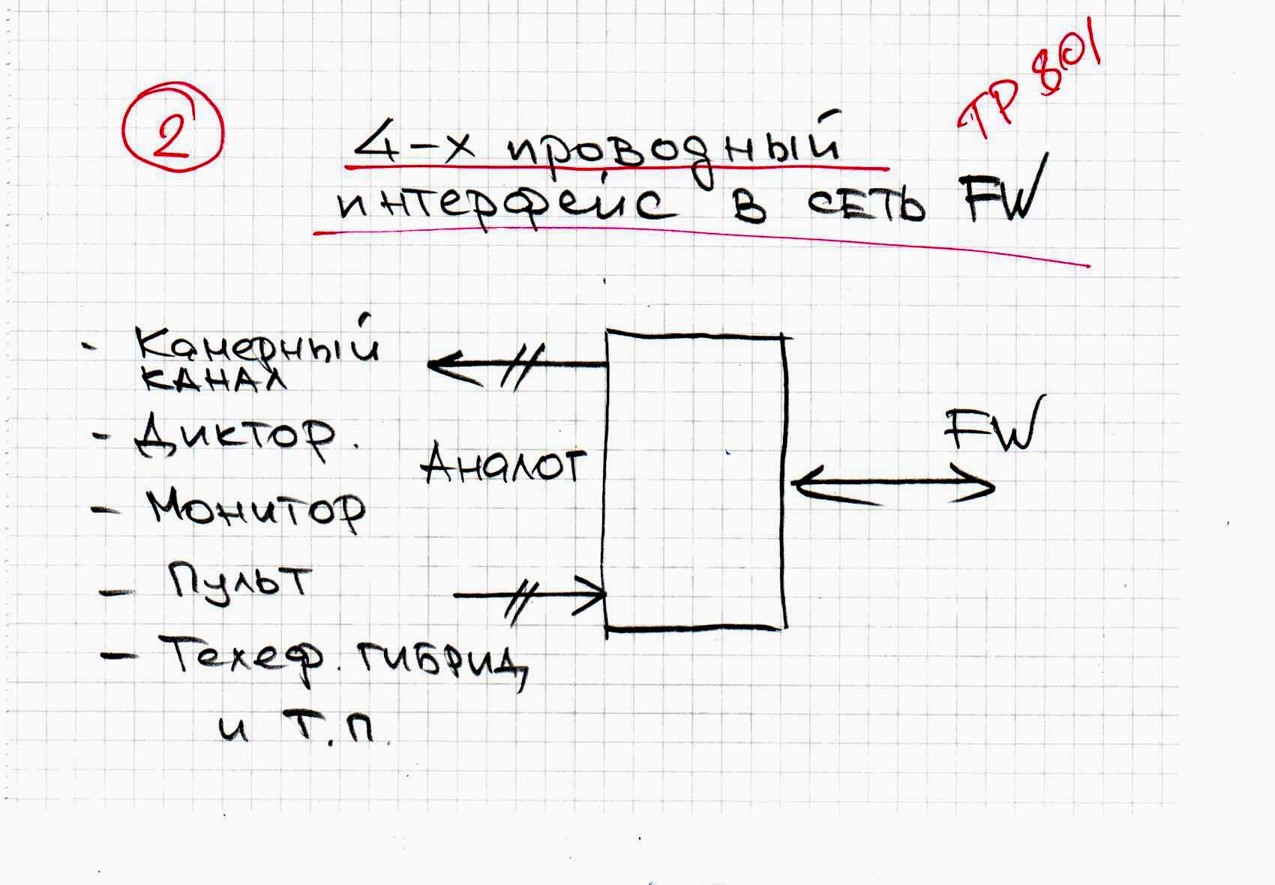 2
TP 801
4-х проводный
интерфейс в сеть FW
- Камерный
канал
- Диктор.
Аналог
FW
- Монитор
- Пульт
- Телеф. гибрид,
и т.п.